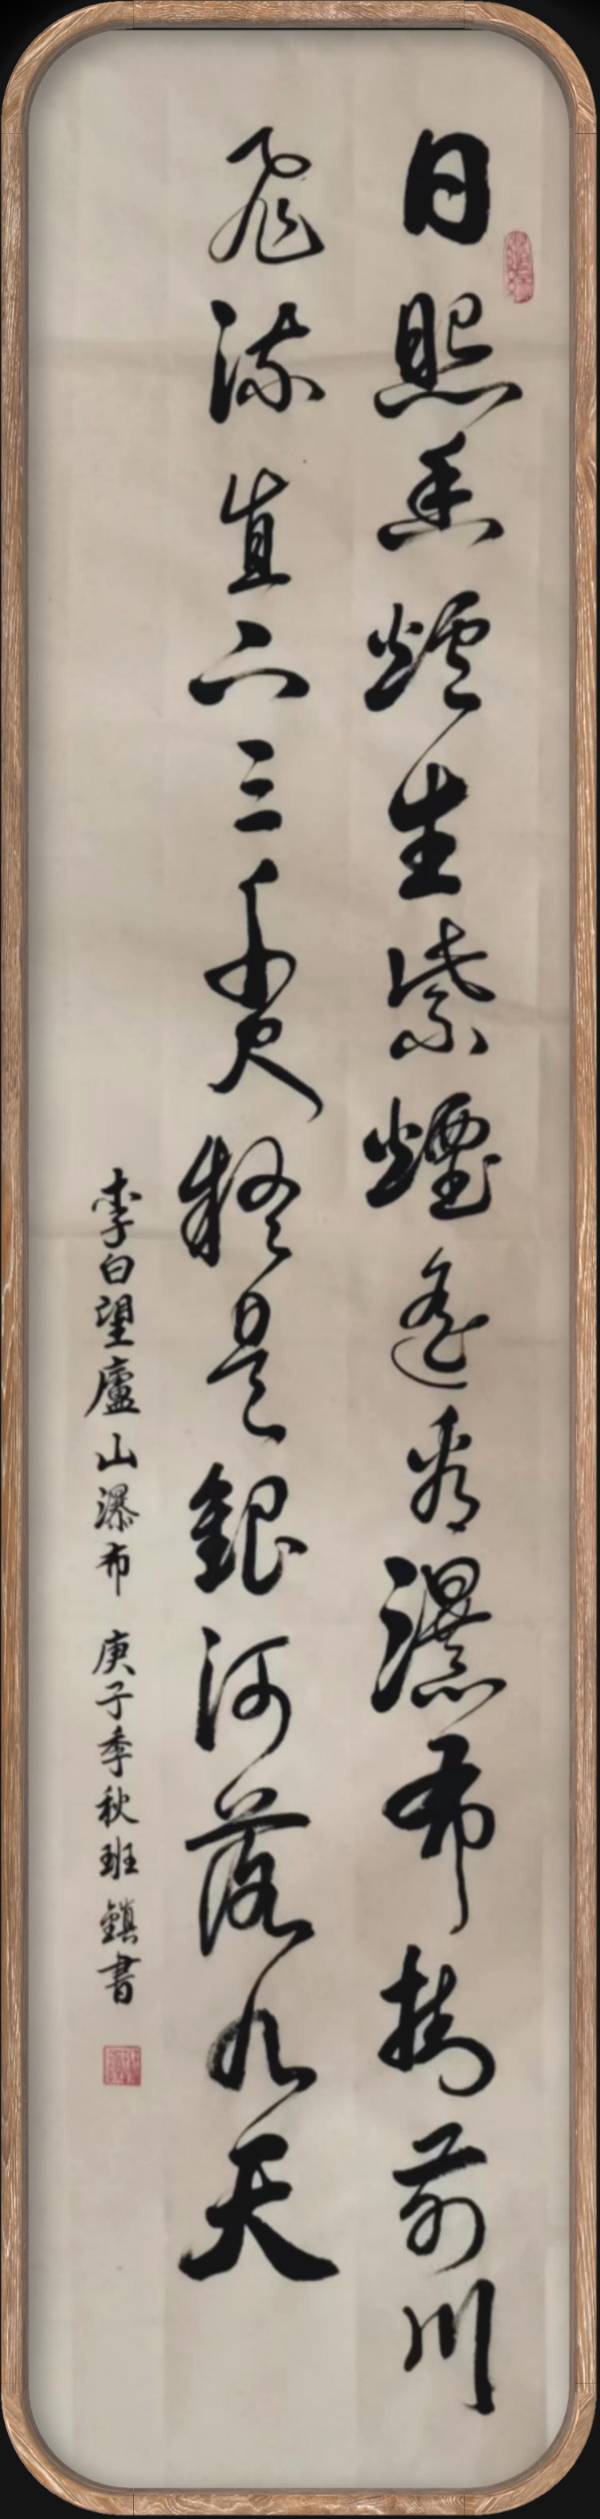 日照香爐生紫煙遙看瀑布掛前川
飛流直下三千尺疑是銀河落九天
李白望廬山瀑布 庚子季秋班鎮書